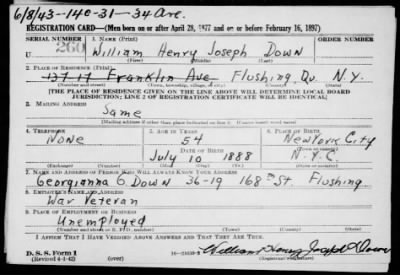 6/8/43-140-31-34 Ave.
REGISTRATION CARD—(Men born on or after April 28, 1877 and on or before February 16, 1897)
SERIAL NUMBER 1. NAME (Print)
260 William Henry Joseph Down
2. PLACE OF RESIDENCE (Print)
137-17 Franklin Ave Flushing Qu. N.Y.
(Number and street) (Town, township, village, or city) (County) (State)
[THE PLACE OF RESIDENCE GIVEN ON THE LINE ABOVE WILL DETERMINE LOCAL BOARD
JURISDICTION; LINE 2 OF REGISTRATION CERTIFICATE WILL BE IDENTICAL]
3. MAILING ADDRESS
Same
[Mailing address if other than place indicated on line 2. If same insert word same]
4. TELEPHONE 5. AGE IN YEARS 6. PLACE OF BIRTH
None 54 New York City
DATE OF BIRTH (Town or county)
July 10 1888 N.Y.C.
(Exchange) (Number) (Mo.) (Day) (Yr.) (State or country)
7. NAME AND ADDRESS OF PERSON WHO WILL ALWAYS KNOW YOUR ADDRESS
Georgianna G. Down 36-19 168th St. Flushing
8. EMPLOYER'S NAME AND ADDRESS
War Veteran
9. PLACE OF EMPLOYMENT OR BUSINESS
Unemployed
(Number and street or R. F. D. number) (Town) (County) (State)
I AFFIRM THAT I HAVE VERIFIED ABOVE ANSWERS AND THAT THEY ARE TRUE.
D. S. S. Form 1 William Henry Joseph Down
(Revised 4-1-42) (over)